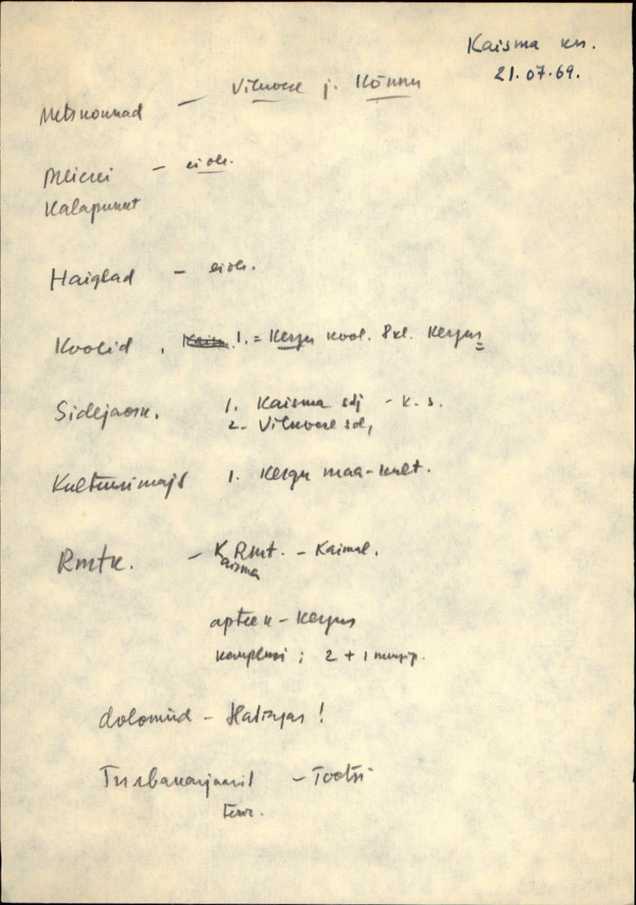 Kaisma kn.
21.07.69.
Metskonnad – Vihuvere j. Kõnnu
Meierei – ei ole.
Kalapunkt
Haiglad – ei ole.
Koolid . 1. = Kergu kool. 8kl. Kergus
Sidejaosk. 1. Kaisma sdj - k. s.
2. sdj
Kultuurimajd 1. Kergu maa-kult.
Rmtk. – Kaisma Rmt. –
apteek – Kergus
kauplusi ; 2 + 1
dolomiid – !
– Tootsi